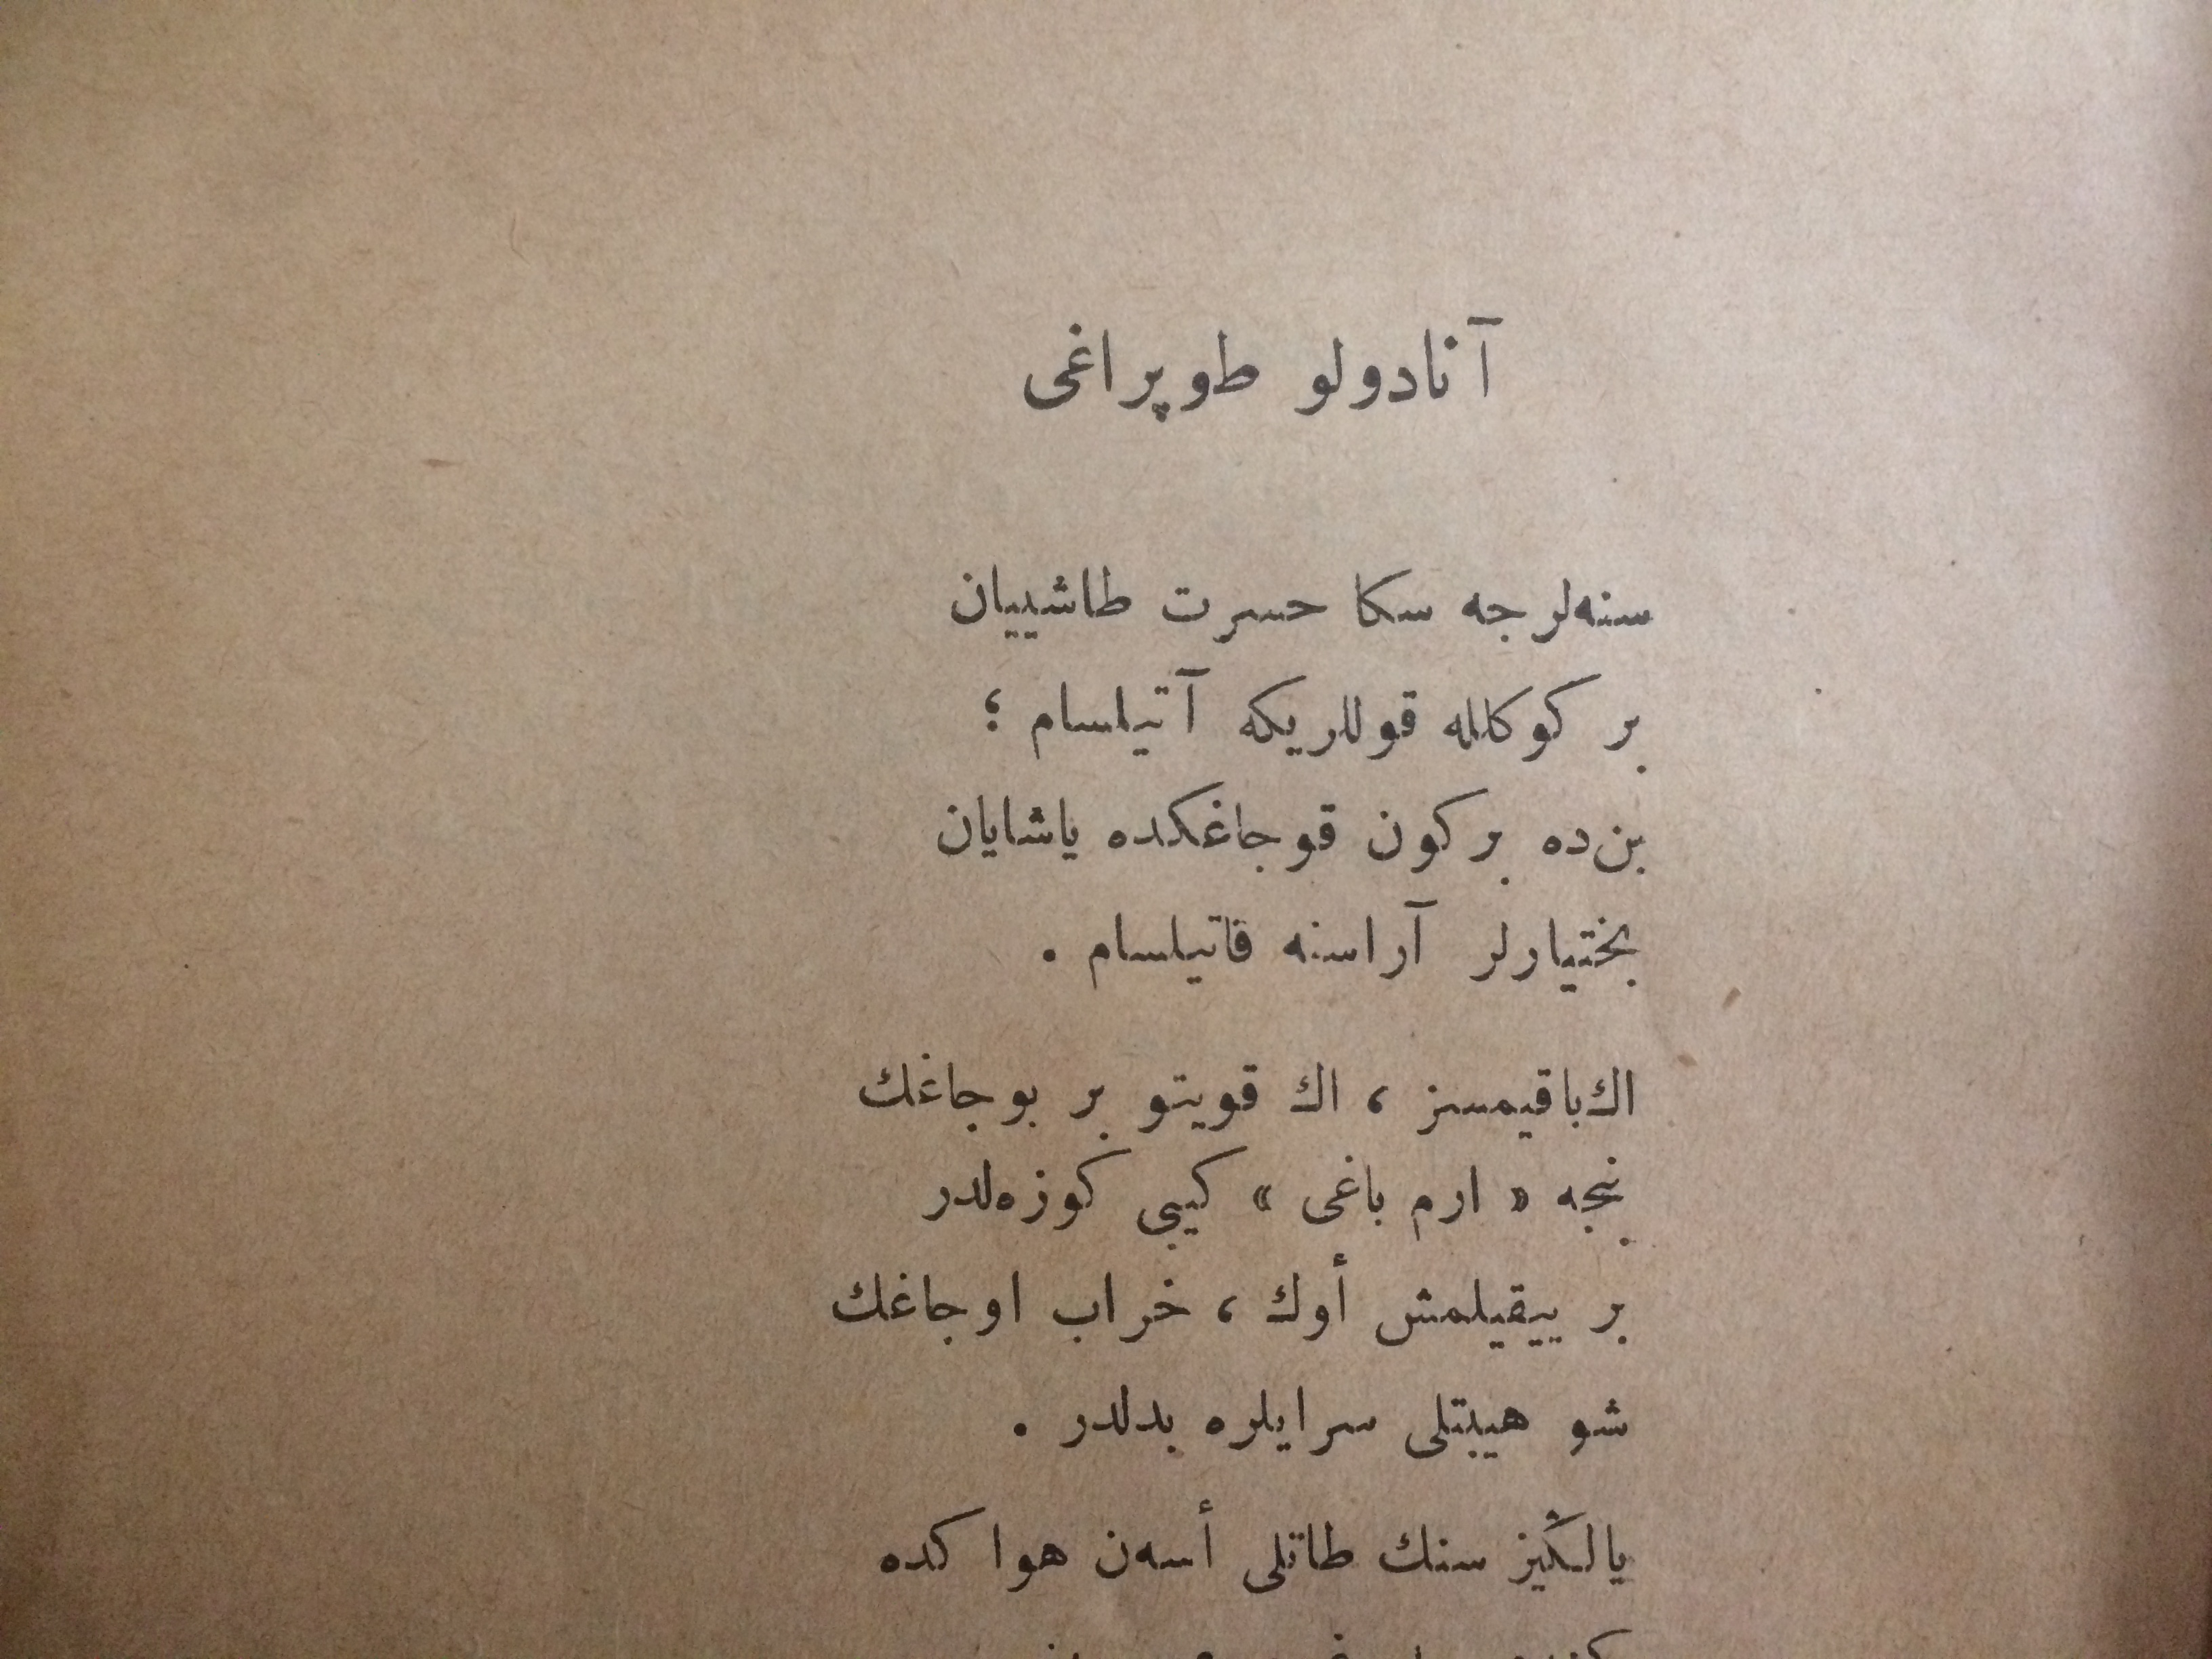 آنادولو طوپراغى
سنه‌لرجه سكا حسرت طاشییان
بر كوكلله قوللریكه آتیلسام ؛
بن‌ده بركون قوجاغكده یاشایان
بختیارلر آراسنه قاتیلسام .
اك‌باقیمسز ، اك قویتو بر بوجاغك
نیجه « ارم باغى » كیبى كوزه‌لدر
بر ییقیلمش أوك ، خراب اوجاغك
شو هیبتلى سرایلره بدلدر .
یالڭیز سنك طاتلى أسه‌ن هواكده